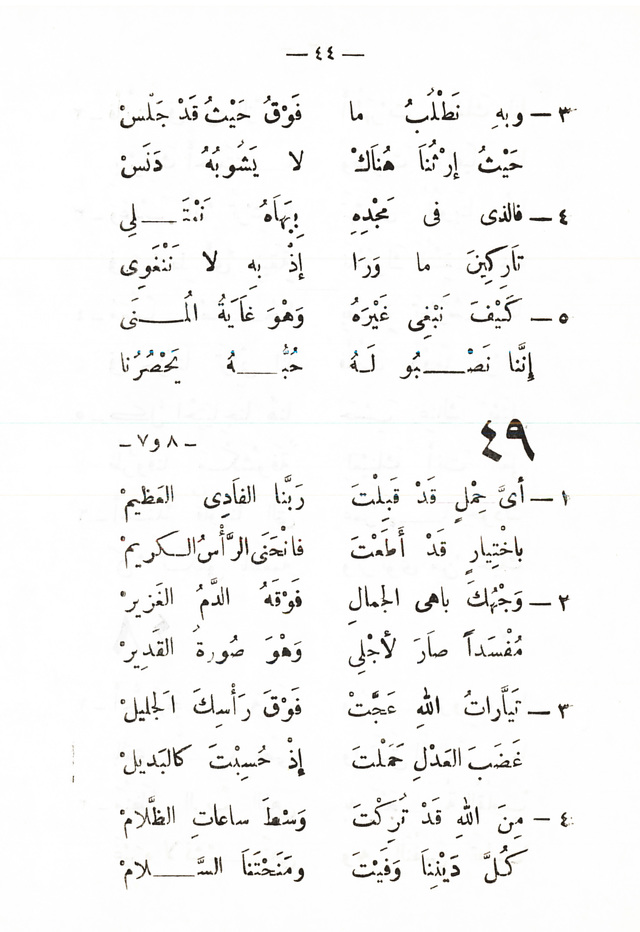 — ٤٤ —
٣ — وبِهِ نَطْلُبُ ما فَوْقُ حَيْثُ قَدْ جَلَسْ
حَيْثُ إِرْثُنَا هُنَاكْ لا يَشُوبُهُ دَنَسْ
٤ — فالذى فى مَجْدِهِ بِبَهَاهُ نَمْتَــلِى
تَارِكِينَ ما وَرَا إِذْ بِهِ لا نَنْغَوِى
٥ — كَيْفَ نَبْغِى غَيْرَهُ وَهْوَ غَايَةُ المُــنَى
إِنَّنَا نَصْــبُو لَـهُ حُبُّــهُ يَحْصُرُنا
٤٩
– ٨ و ٧ –
١ — أىَّ حِمْلٍ قَدْ قَبِلْتَ رَبَّنا الفَادِى العَظِيمْ
باخْتِيارٍ قَدْ أَطَعْتَ فانْحَنَى الرَّأْسُ الـكريمْ
٢ — وَجْهُكَ باهى الجمالِ فَوْقَهُ الدَّمُ الغَزِيرْ
مُفْسَداً صَارَ لأَجْلِى وَهْوَ صُورةُ القَدِيرْ
٣ — تَيَّارَاتُ اللهِ عَجَّتْ فَوْقَ رَأْسِكَ الجليلْ
غَضَبَ العَدْلِ حَمَلْتَ إِذْ حُسِبْتَ كالبَدِيلْ
٤ — مِنَ اللهِ قَدْ تُرِكْتَ وَسْطَ ساعاتِ الظَّلامْ
كُلَّ دَيْنِنَا وَفَيْتَ ومَنَحْتَنَا السَّــلامْ